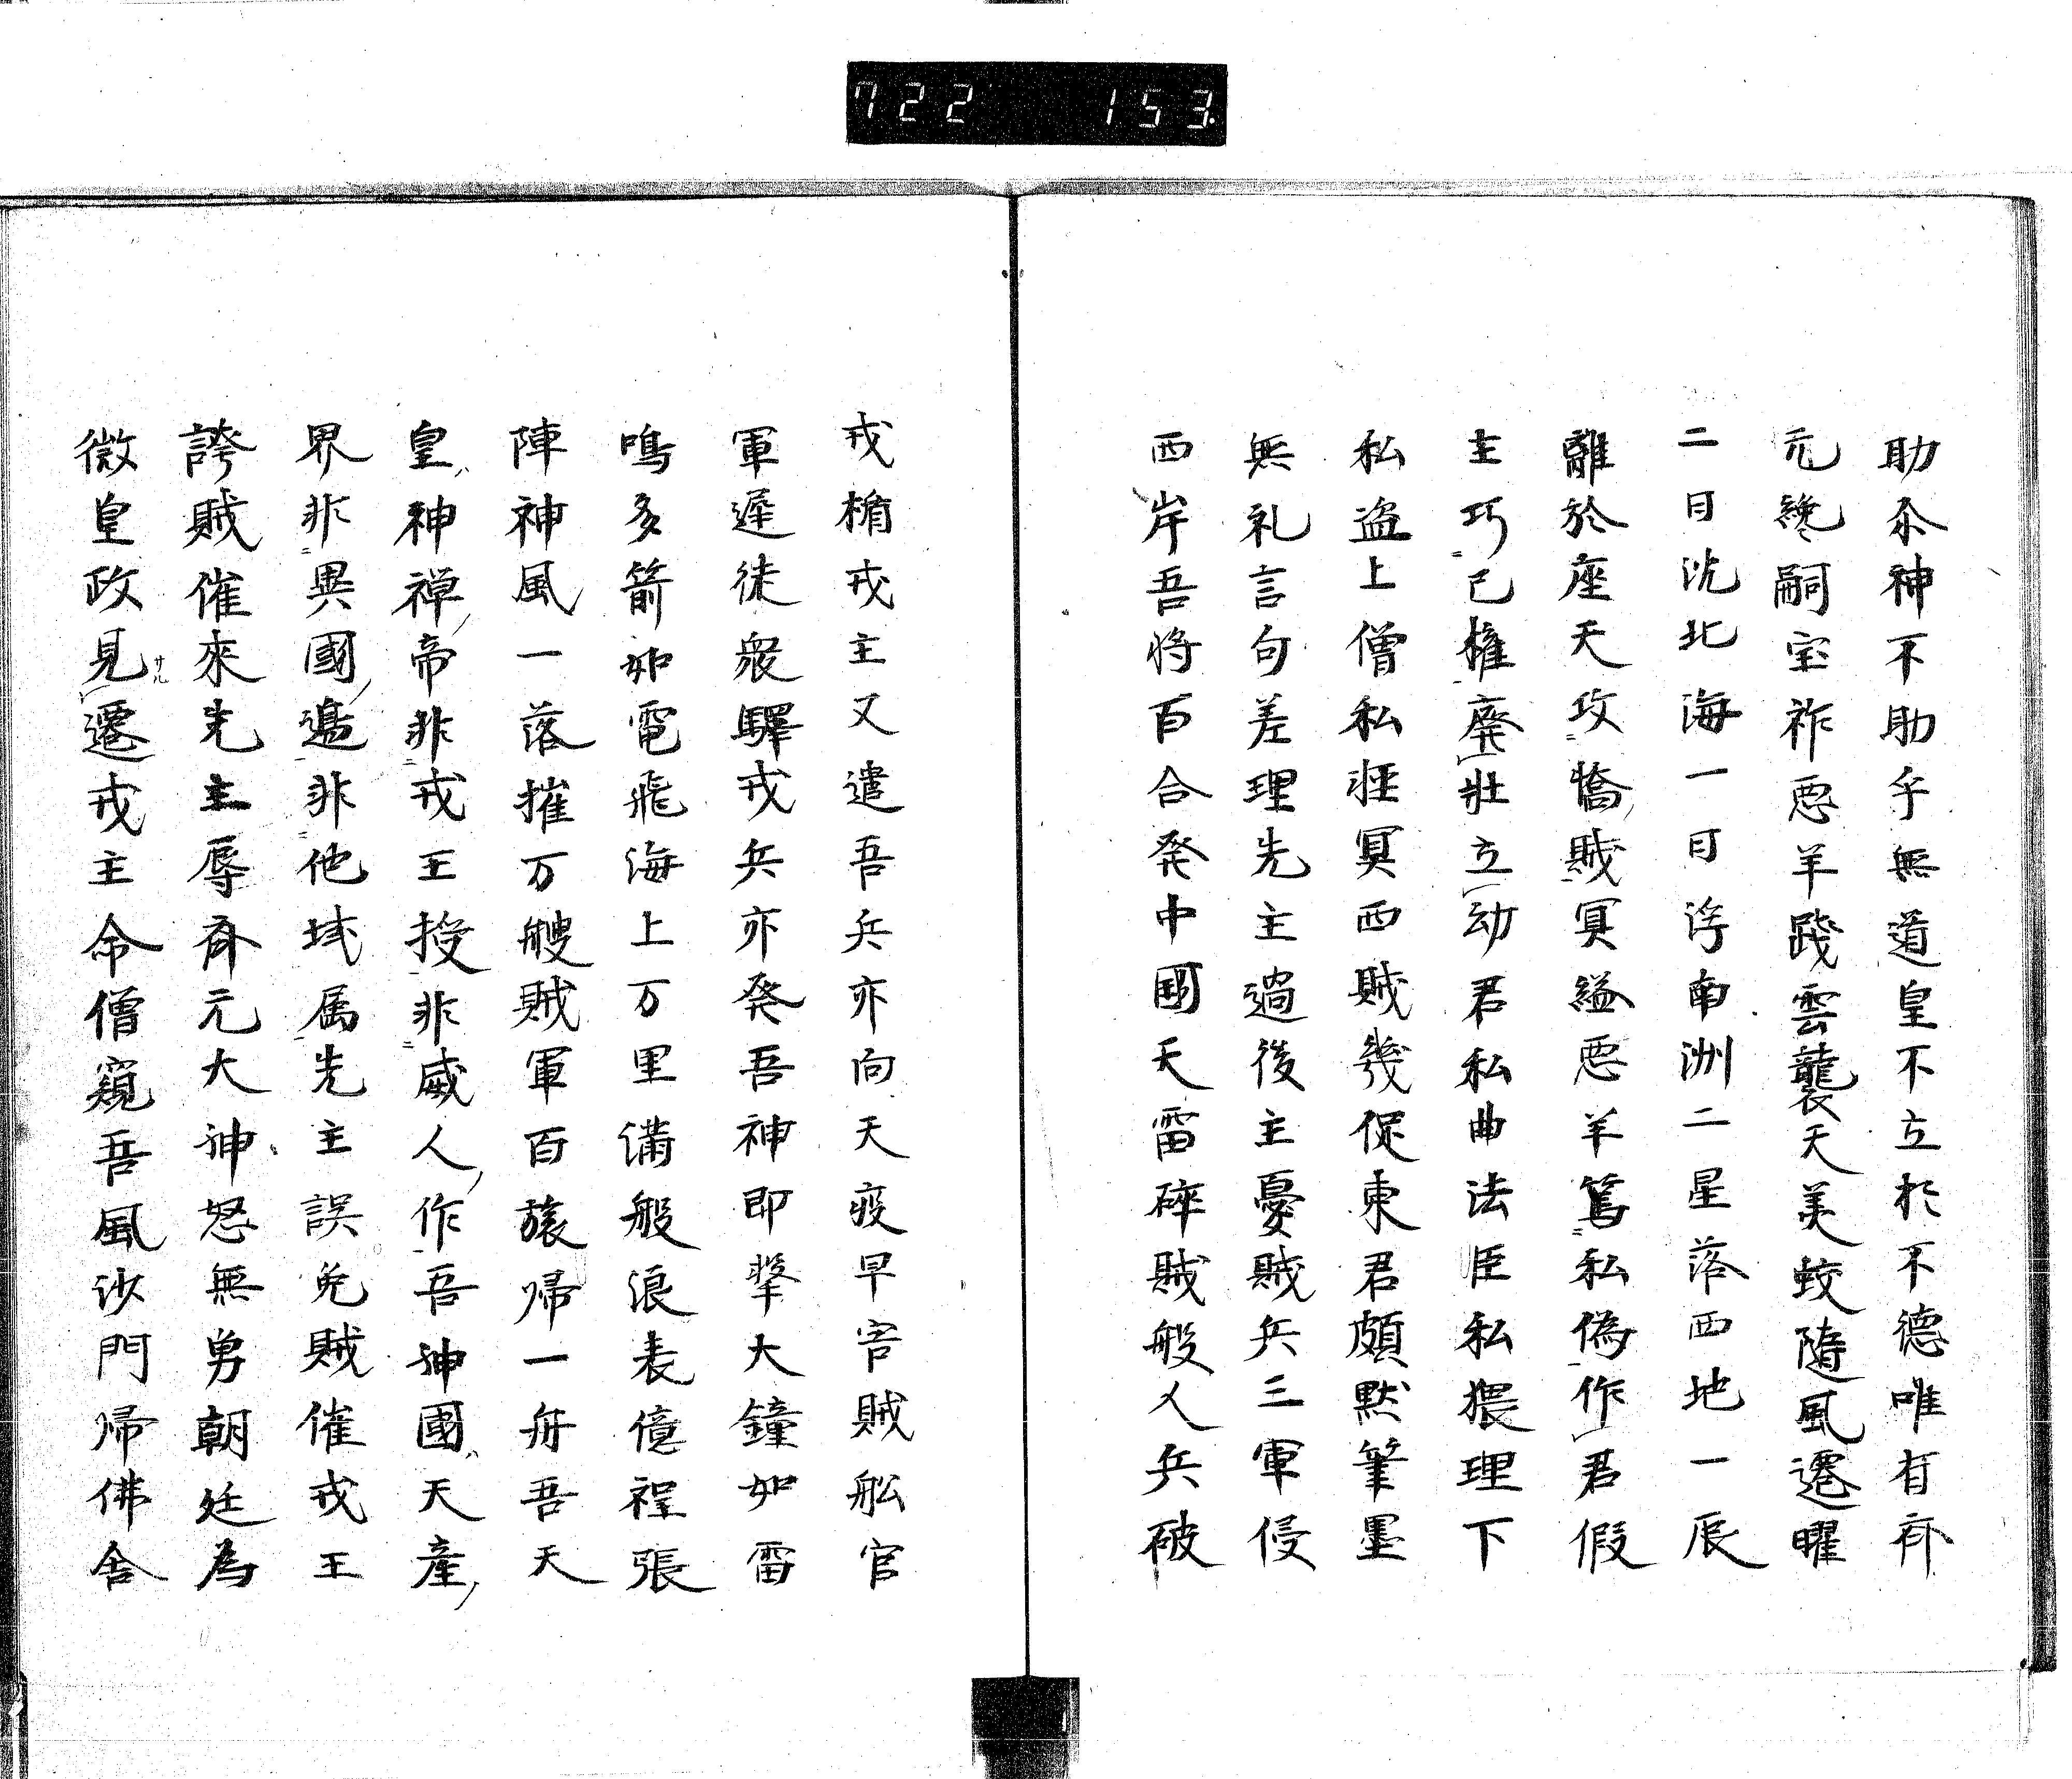 722 153.
助祢神不助乎無道皇不立於不德唯有祢
元纔嗣宝祚惡羊踐雲襲天美蛟隨風遷曜
二日沈北海一日浮南洲二星落西地一辰
離於座天攻憍賊冥縊惡羊篤私偽作君假
主巧己権廃壮立幼君私曲法臣私猥理下
私盗上僧私狂冥西賊幾促東君頗黙筆墨
無礼言句差理先主過後主憂賊兵三軍侵
西岸吾将百合発中国天雷碎賊般人兵破
戎楯戎主又遣吾兵亦向天疫早害賊舩官
軍遅徒衆驛戎兵亦発吾神即撃大鐘如雷
鳴多箭如電飛海上万里満般浪表億程張
陣神風一落摧万艘賊軍百旅帰一舟吾天
皇神禅帝非戎王授非威人作吾神國天産
界非異國邊非他域属先主誤免賊催戎王
誇賊催來先主辱斉元大神怒無勇朝廷為
微皇政見サル遷戎主命僧窺吾風沙門帰佛舎